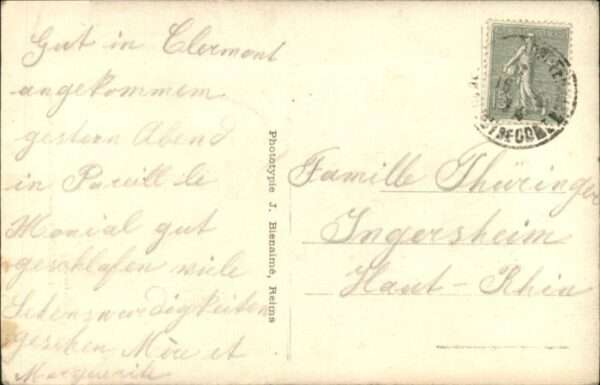 Gut in Clermont
angekommen
gestern Abend
in Pareill le
Monial gut
geschlafen viele
Sehenswürdigkeiten
gesehen Mère et
Marguerite
Phototypie J. Bienaimé, Reims
Famille Thüringer
Ingersheim
Haut-Rhin